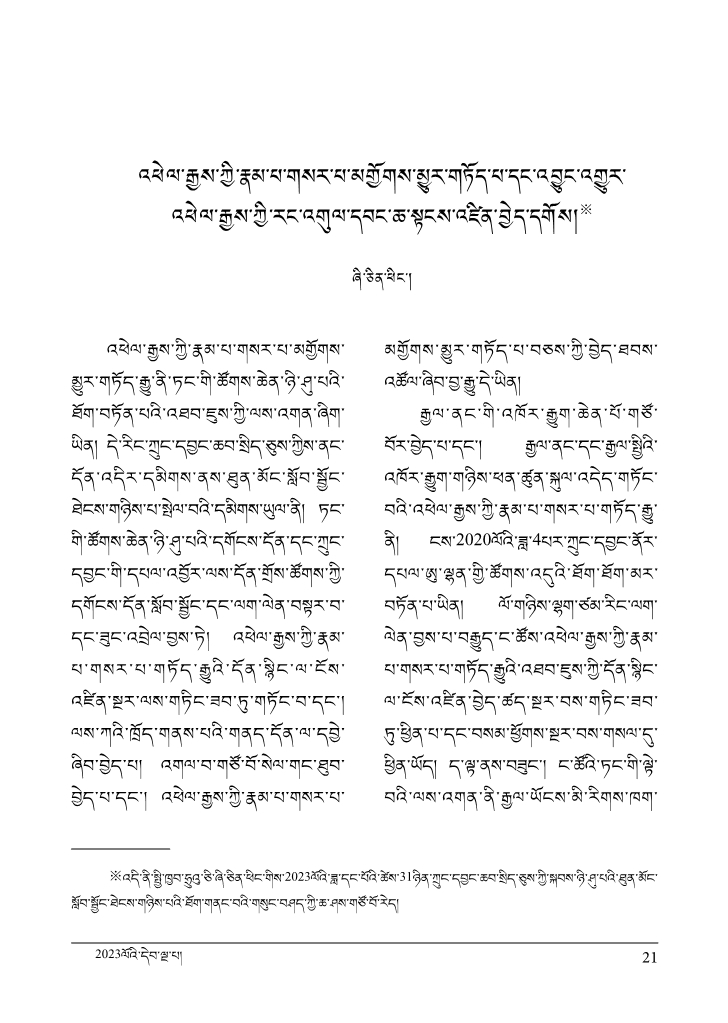 འཕེལ་རྒྱས་ཀྱི་རྣམ་པ་གསར་པ་མགྱོགས་མྱུར་གཏོད་པ་དང་འབྱུང་འགྱུར་
འཕེལ་རྒྱས་ཀྱི་རང་འགུལ་དབང་ཆ་སྟངས་འཛིན་བྱེད་དགོས།※
ཞི་ཅིན་ཕིང་།
འཕེལ་རྒྱས་ཀྱི་རྣམ་པ་གསར་པ་མགྱོགས་
མྱུར་གཏོད་རྒྱུ་ནི་ཏང་གི་ཚོགས་ཆེན་ཉི་ཤུ་པའི་
ཐོག་བཏོན་པའི་འཐབ་ཇུས་ཀྱི་ལས་འགན་ཞིག་
ཡིན། དེ་རིང་ཀྲུང་དབྱང་ཆབ་སྲིད་ཅུས་ཀྱིས་ནང་
དོན་འདིར་དམིགས་ནས་ཐུན་མོང་སློབ་སྦྱོང་
ཐེངས་གཉིས་པ་སྤེལ་བའི་དམིགས་ཡུལ་ནི། ཏང་
གི་ཚོགས་ཆེན་ཉི་ཤུ་པའི་དགོངས་དོན་དང་ཀྲུང་
དབྱང་གི་དཔལ་འབྱོར་ལས་དོན་གྲོས་ཚོགས་ཀྱི་
དགོངས་དོན་སློབ་སྦྱོང་དང་ལག་ལེན་བསྟར་བ་
དང་ཟུང་འབྲེལ་བྱས་ཏེ། འཕེལ་རྒྱས་ཀྱི་རྣམ་
པ་གསར་པ་གཏོད་རྒྱུའི་དོན་སྙིང་ལ་ངོས་
འཛིན་སྔར་ལས་གཏིང་ཟབ་ཏུ་གཏོང་བ་དང་།
ལས་ཀའི་ཁྲོད་གནས་པའི་གནད་དོན་ལ་དབྱེ་
ཞིབ་བྱེད་པ། འགལ་བ་གཙོ་བོ་སེལ་གང་ཐུབ་
བྱེད་པ་དང་། འཕེལ་རྒྱས་ཀྱི་རྣམ་པ་གསར་པ་
མགྱོགས་མྱུར་གཏོད་པ་བཅས་ཀྱི་བྱེད་ཐབས་
འཚོལ་ཞིབ་བྱ་རྒྱུ་དེ་ཡིན།
རྒྱལ་ནང་གི་འཁོར་རྒྱུག་ཆེན་པོ་གཙོ་
བོར་བྱེད་པ་དང་། རྒྱལ་ནང་དང་རྒྱལ་སྤྱིའི་
འཁོར་རྒྱུག་གཉིས་ཕན་ཚུན་སྐུལ་འདེད་གཏོང་
བའི་འཕེལ་རྒྱས་ཀྱི་རྣམ་པ་གསར་པ་གཏོད་རྒྱུ་
ནི། ངས་2020ལོའི་ཟླ་4པར་ཀྲུང་དབྱང་ནོར་
དཔལ་ཨུ་ལྷན་གྱི་ཚོགས་འདུའི་ཐོག་ཐོག་མར་
བཏོན་པ་ཡིན། ལོ་གཉིས་ལྷག་ཙམ་རིང་ལག་
ལེན་བྱས་པ་བརྒྱུད་ང་ཚོས་འཕེལ་རྒྱས་ཀྱི་རྣམ་
པ་གསར་པ་གཏོད་རྒྱུའི་འཐབ་ཇུས་ཀྱི་དོན་སྙིང་
ལ་ངོས་འཛིན་བྱེད་ཚད་སྔར་བས་གཏིང་ཟབ་
ཏུ་ཕྱིན་པ་དང་བསམ་ཕྱོགས་སྔར་བས་གསལ་དུ་
ཕྱིན་ཡོད། ད་ལྟ་ནས་བཟུང་། ང་ཚོའི་ཏང་གི་ལྟེ་
བའི་ལས་འགན་ནི་རྒྱལ་ཡོངས་མི་རིགས་ཁག་
※འདི་ནི་སྤྱི་ཁྱབ་ཧྲུའུ་ཅི་ཞི་ཅིན་ཕིང་གིས་2023ལོའི་ཟླ་དང་པོའི་ཚེས་31ཉིན་ཀྲུང་དབྱང་ཆབ་སྲིད་ཅུས་ཀྱི་སྐབས་ཉི་ཤུ་པའི་ཐུན་མོང་
སློབ་སྦྱོང་ཐེངས་གཉིས་པའི་ཐོག་གནང་བའི་གསུང་བཤད་ཀྱི་ཆ་ཤས་གཙོ་བོ་རེད།
2023ལོའི་དེབ་ལྔ་པ། 21